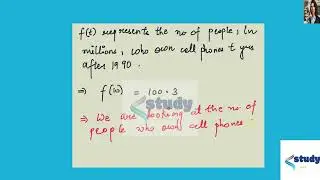 f(t) represents the no of people, In
millions, who own cell phones t yrs
after 1990.
⇒ f(10) = 100.3
study
⇒ We are looking at the no. of
people who own cell phones
study